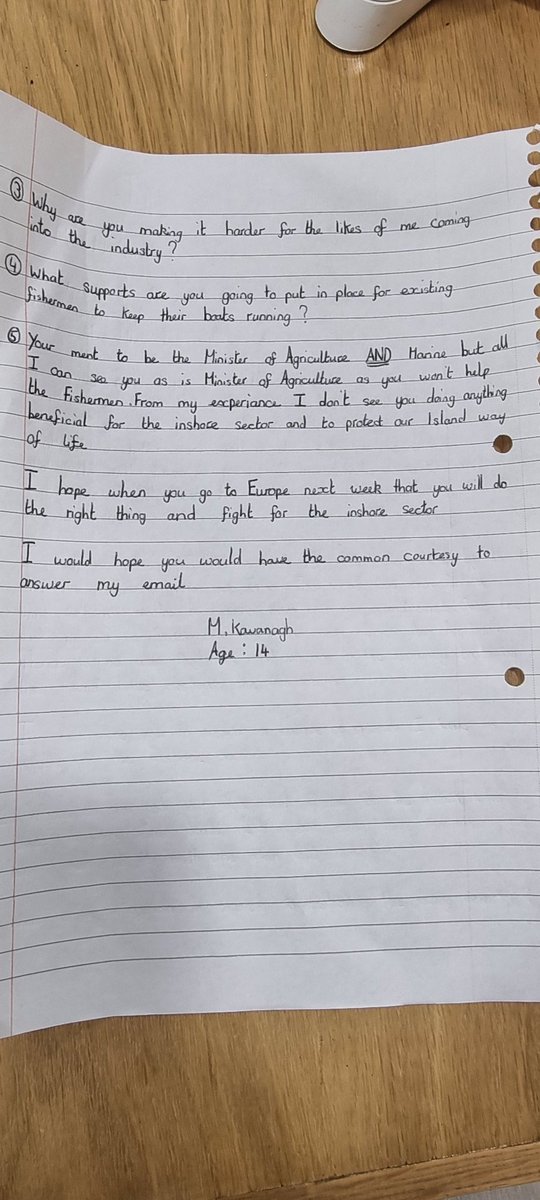 ③ Why are you making it harder for the likes of me coming
into the industry?
④ What supports are you going to put in place for existing
fishermen to keep their boats running?
⑤ Your ment to be the Minister of Agriculture AND Marine but all
I can see you as is Minister of Agriculture as you won't help
the Fishermen. From my experiance I don't see you doing anything
beneficial for the inshore sector and to protect our Island way
of life
I hope when you go to Europe next week that you will do
the right thing and fight for the inshore sector
I would hope you would have the common courtesy to
answer my email
M. Kavanagh
Age : 14